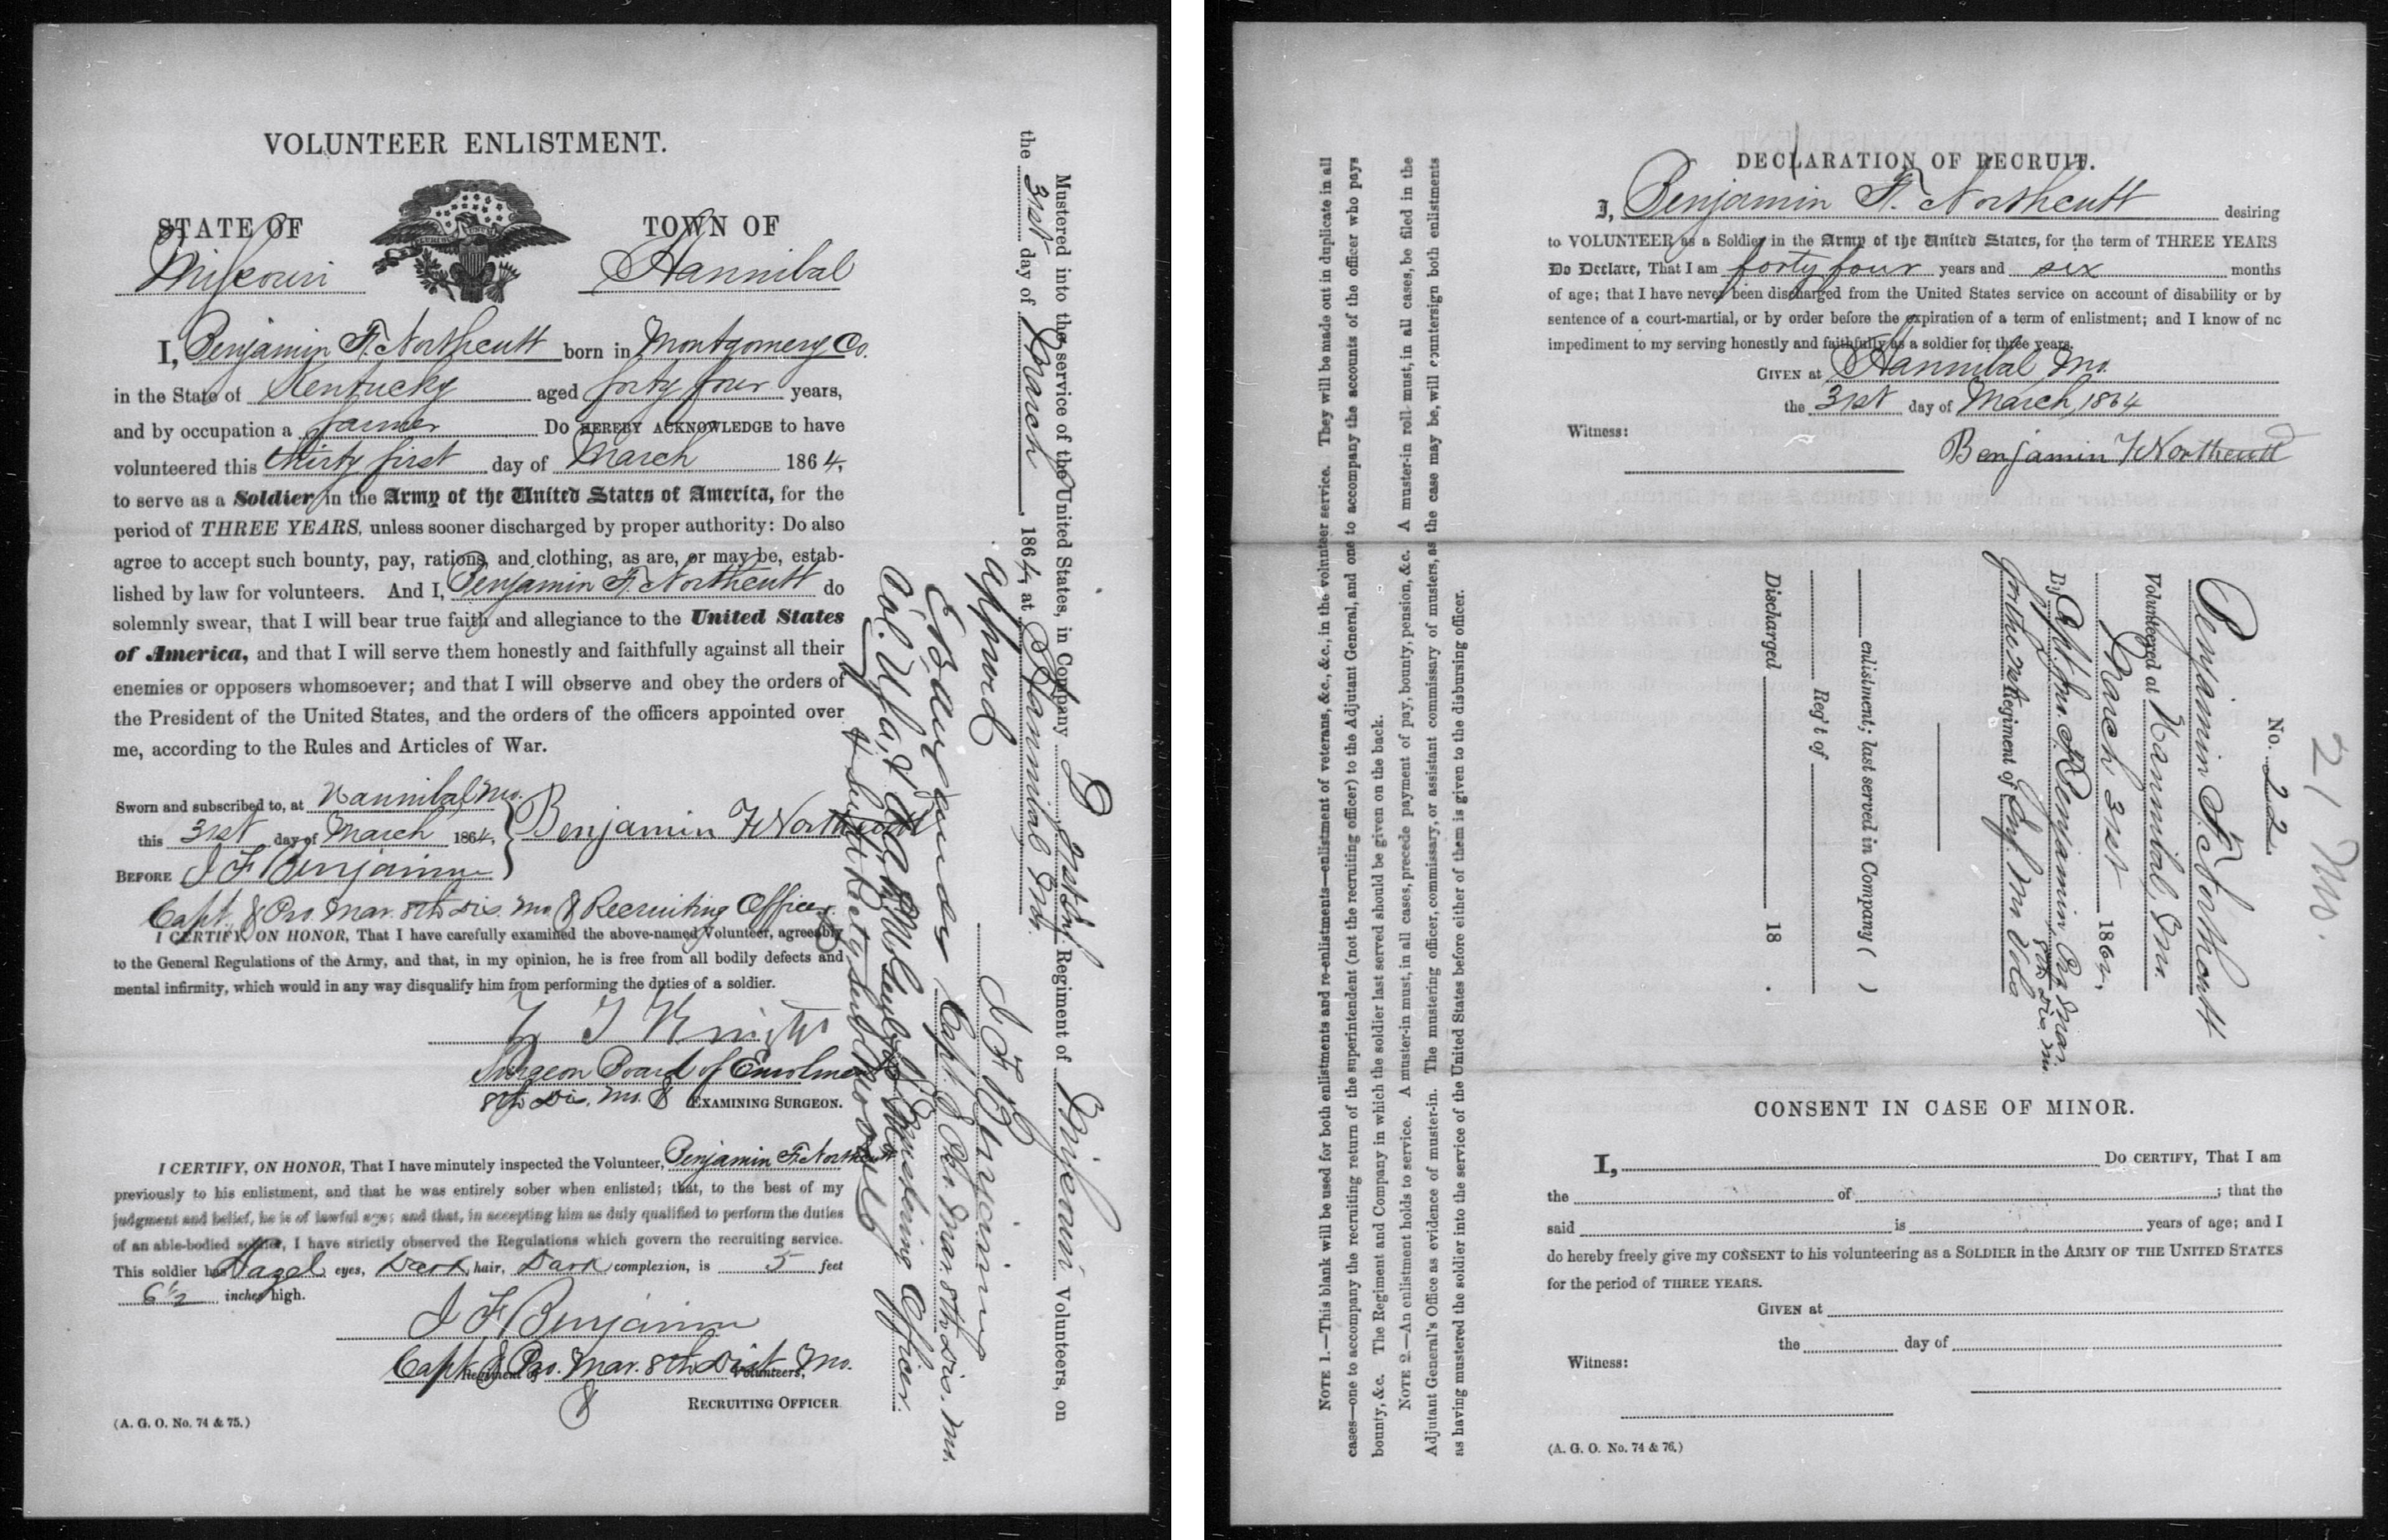 VOLUNTEER ENLISTMENT.
STATE OF
TOWN OF
Missouri
Hannibal
I, Benjamin F. Northcutt born in Montgomery Co.
in the State of Kentucky aged forty four years,
and by occupation a farmer Do HEREBY ACKNOWLEDGE to have
volunteered this thirty first day of March 1864,
to serve as a Soldier in the Army of the United States of America, for the
period of THREE YEARS, unless sooner discharged by proper authority: Do also
agree to accept such bounty, pay, rations, and clothing, as are, or may be, estab-
lished by law for volunteers. And I, Benjamin F. Northcutt do
solemnly swear, that I will bear true faith and allegiance to the United States
of America, and that I will serve them honestly and faithfully against all their
enemies or opposers whomsoever; and that I will observe and obey the orders of
the President of the United States, and the orders of the officers appointed over
me, according to the Rules and Articles of War.
Sworn and subscribed to, at Hannibal Mo.
this 31st day of March 1864,
Benjamin F Northcutt
BEFORE J F Benjamin
Capt. & Pro. Mar. 8th Dis. Mo. & Recruiting Officer.
I CERTIFY, ON HONOR, That I have carefully examined the above-named Volunteer, agreeably
to the General Regulations of the Army, and that, in my opinion, he is free from all bodily defects and
mental infirmity, which would in any way disqualify him from performing the duties of a soldier.
Surgeon Board of Enrolment
8th Dis. Mo. & EXAMINING SURGEON.
I CERTIFY, ON HONOR, That I have minutely inspected the Volunteer, Benjamin F. Northcutt
previously to his enlistment, and that he was entirely sober when enlisted; that, to the best of my
judgment and belief, he is of lawful age; and that, in accepting him as duly qualified to perform the duties
of an able-bodied soldier, I have strictly observed the Regulations which govern the recruiting service.
This soldier has Hazel eyes, Dark hair, Dark complexion, is 5 feet
6 1/2 inches high.
J F Benjamin
Capt. & Pro. Mar. 8th Dist. Mo.
Regiment of Volunteers,
RECRUITING OFFICER
(A. G. O. No. 74 & 75.)
Mustered into the service of the United States, in Company D 21st Inf. Regiment of Missouri Volunteers, on
the 31st day of March 1864, at Hannibal Mo.
approved
J F Benjamin
Capt. & Pro. Mar. 8th Dis. Mo.
Mustering Officer.
DECLARATION OF RECRUIT.
I, Benjamin F. Northcutt desiring
to VOLUNTEER as a Soldier in the Army of the United States, for the term of THREE YEARS
Do Declare, That I am forty four years and six months
of age; that I have never been discharged from the United States service on account of disability or by
sentence of a court-martial, or by order before the expiration of a term of enlistment; and I know of no
impediment to my serving honestly and faithfully as a soldier for three years.
GIVEN at Hannibal Mo.
the 31st day of March 1864
Witness:
Benjamin F Northcutt
21 Mo.
No. 22
Benjamin F. Northcutt
Volunteered at Hannibal, Mo.
March 31st 1864,
By Capt. Jno. F. Benjamin, Pro Mar.
8th Dis. Mo.
for the 21st Regiment of Inf. Mo. Vols
enlistment; last served in Company ( )
Reg't of
Discharged 18 .
CONSENT IN CASE OF MINOR.
I, Do CERTIFY, That I am
the of ; that the
said is years of age; and I
do hereby freely give my CONSENT to his volunteering as a SOLDIER in the ARMY OF THE UNITED STATES
for the period of THREE YEARS.
GIVEN at
the day of
Witness:
(A. G. O. No. 74 & 76.)
NOTE 1.—This blank will be used for both enlistments and re-enlistments—enlistment of veterans, &c., &c., in the volunteer service. They will be made out in duplicate in all
cases—one to accompany the recruiting return of the superintendent (not the recruiting officer) to the Adjutant General, and one to accompany the accounts of the officer who pays
bounty, &c. The Regiment and Company in which the soldier last served should be given on the back.
NOTE 2.—An enlistment holds to service. A muster-in must, in all cases, precede payment of pay, bounty, pension, &c. A muster-in roll must, in all cases, be filed in the
Adjutant General's Office as evidence of muster-in. The mustering officer, commissary, or assistant commissary of musters, as the case may be, will countersign both enlistments
as having mustered the soldier into the service of the United States before either of them is given to the disbursing officer.